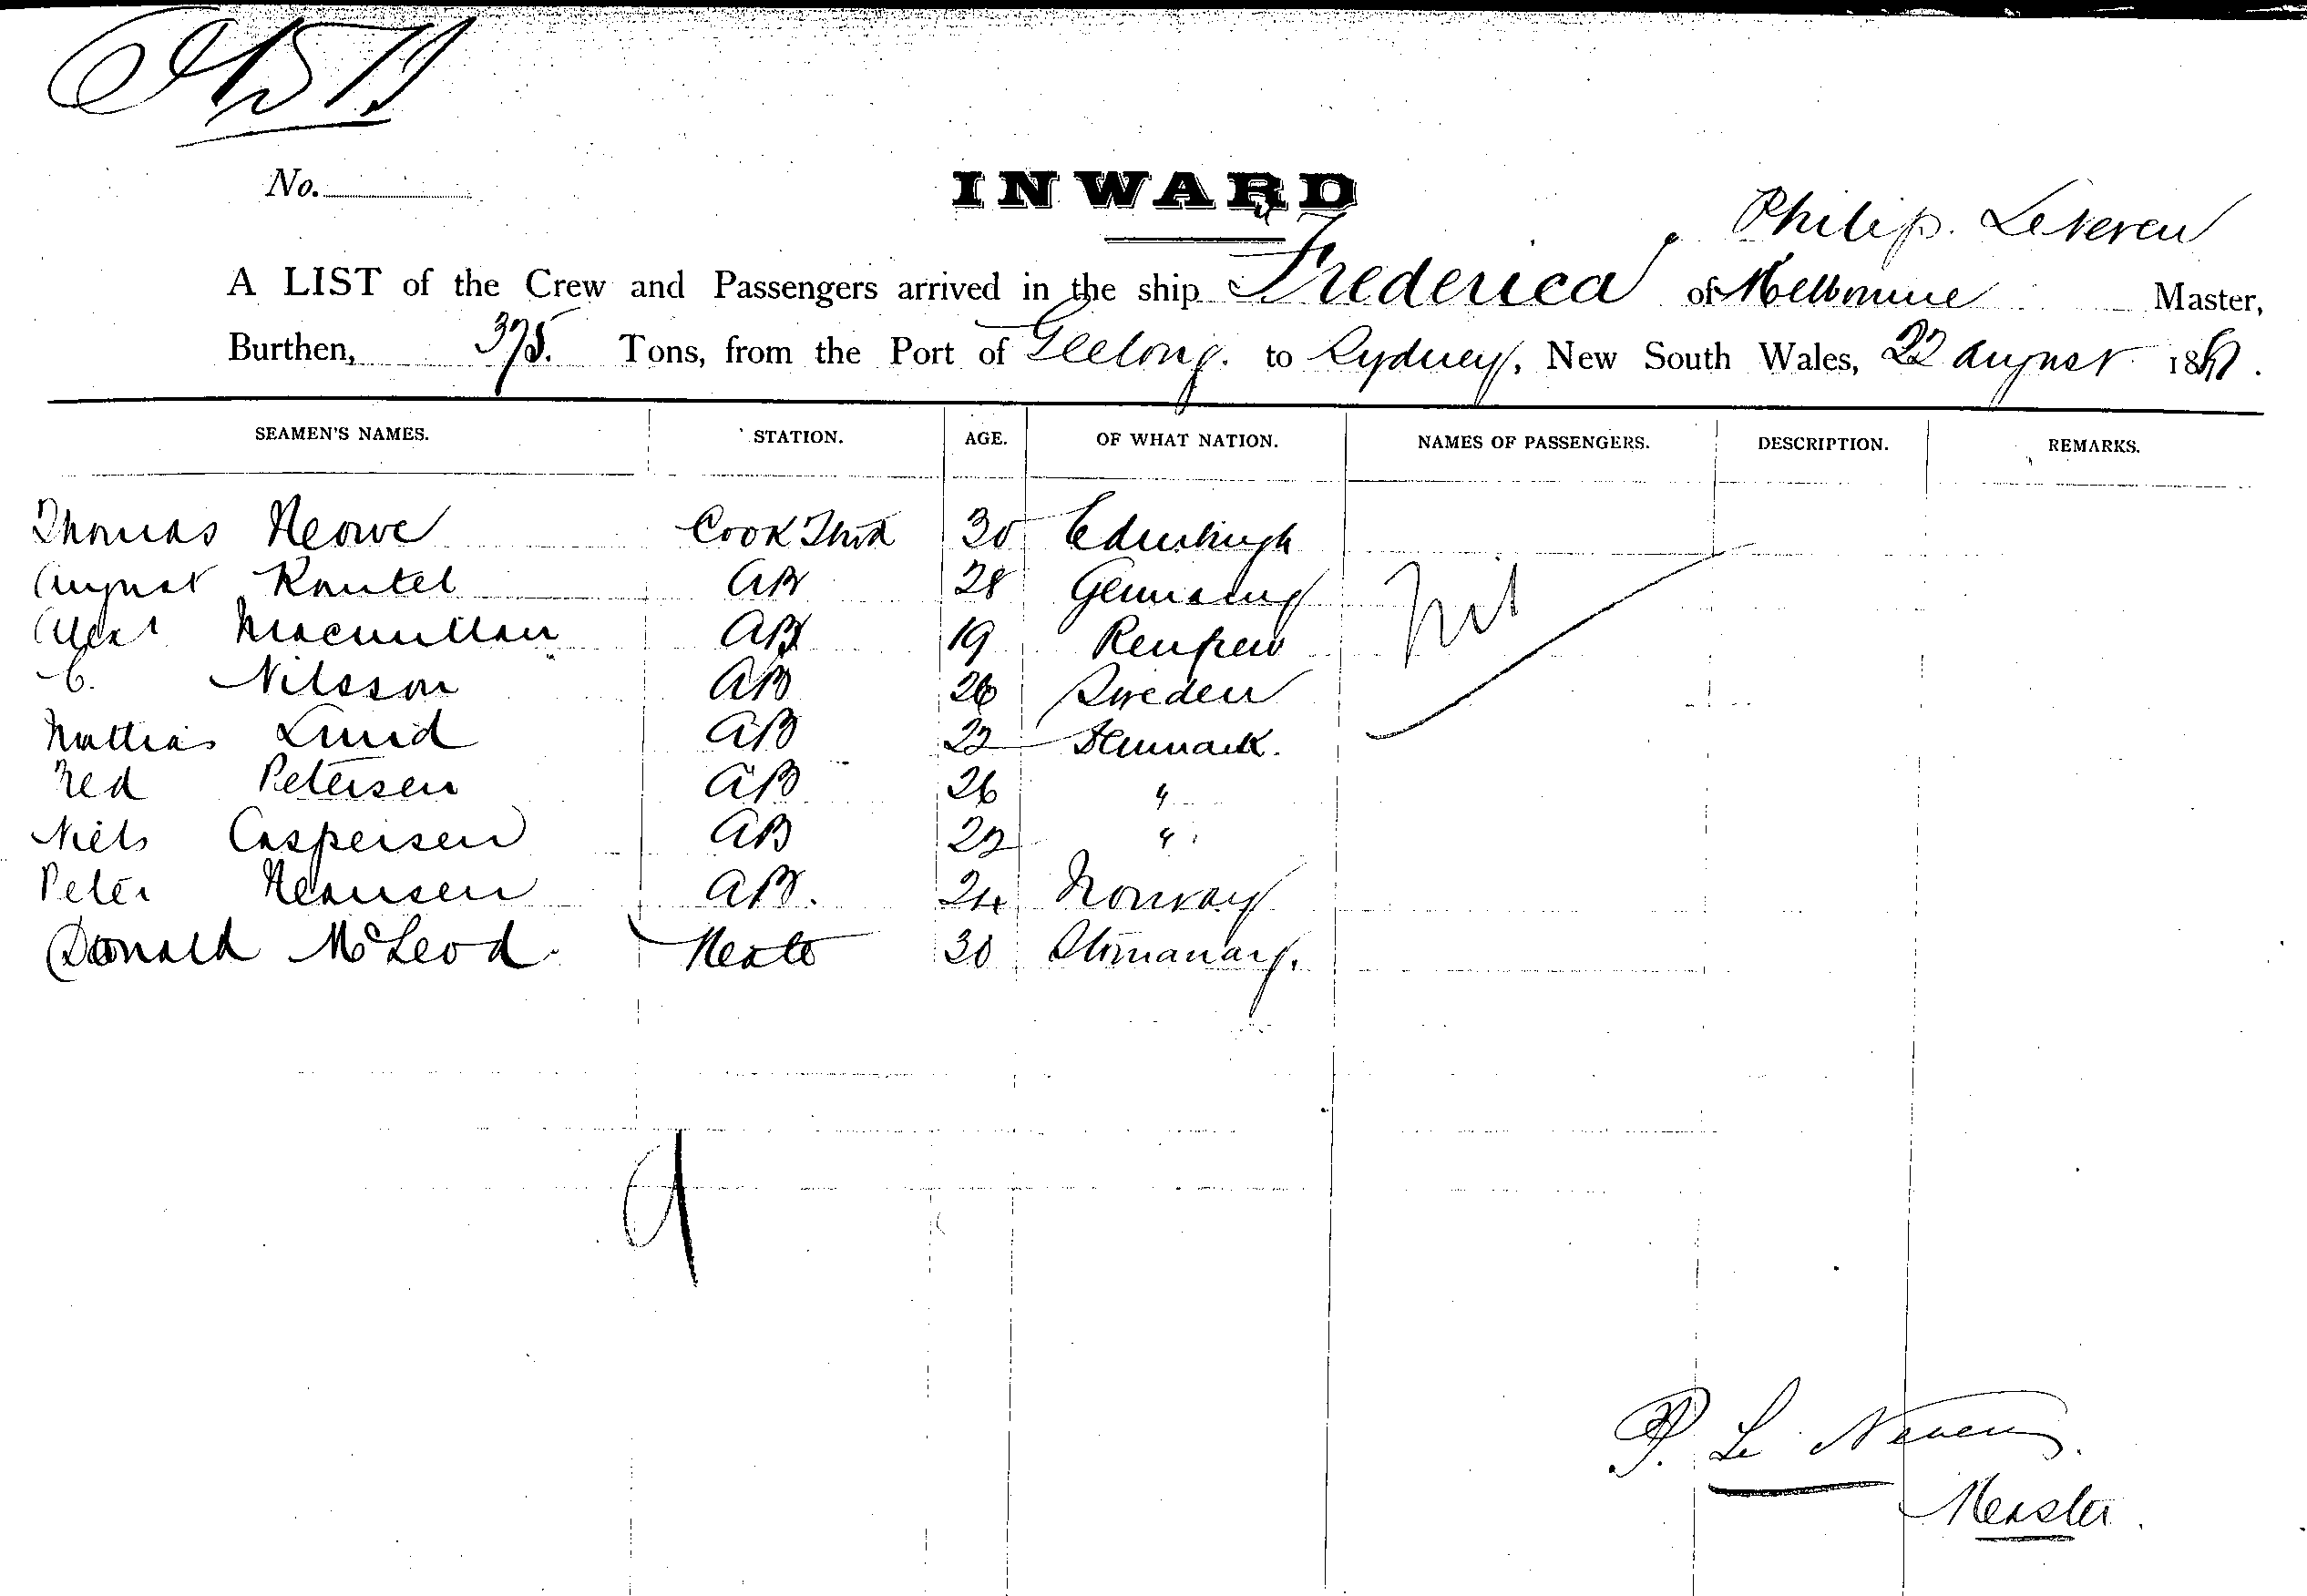 No.
INWARD
Philip Le
A LIST of the Crew and Passengers arrived in the ship Frederica of Melbourne Master,
Burthen, 375. Tons, from the Port of Geelong. to Sydney, New South Wales, 22 August 18
SEAMEN'S NAMES. STATION. AGE. OF WHAT NATION. NAMES OF PASSENGERS. DESCRIPTION. REMARKS.
Thomas Cook 30 Edinburgh
August AB 28 Germany Nil
Macmillan AB 19 Renfrew
C. Nilsson AB 26 Sweden
Mathias Lund AB 22 Denmark.
Petersen AB 26 "
Niels Caspersen AB 22 "
Peter Hansen AB. 24 Norway
Donald McLeod. Mate 30
9
P. Le
Master.